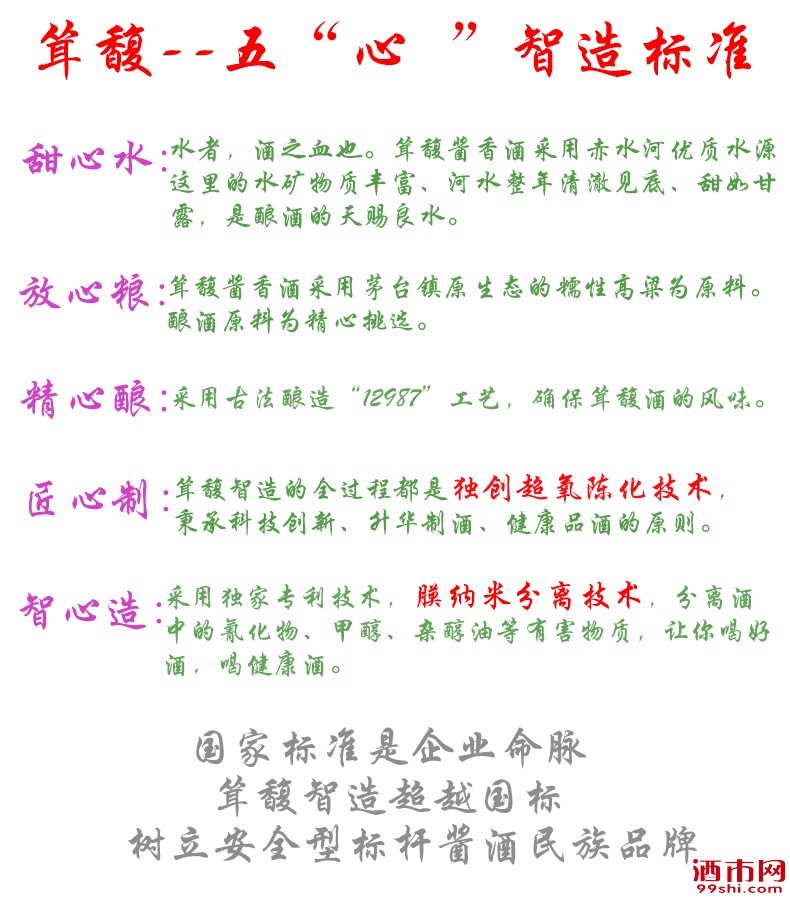 茸馥--五“心 ”智造标准
甜心水:水者，酒之血也。茸馥酱香酒采用赤水河优质水源
这里的水矿物质丰富、河水整年清澈见底、甜如甘
露，是酿酒的天赐良水。
放心粮:茸馥酱香酒采用茅台镇原生态的糯性高粱为原料。
酿酒原料为精心挑选。
精心酿:采用古法酿造“12987”工艺，确保茸馥酒的风味。
匠心制:茸馥智造的全过程都是独创超氧陈化技术，
秉承科技创新、升华制酒、健康品酒的原则。
智心造:采用独家专利技术，膜纳米分离技术，分离酒
中的氰化物、甲醇、杂醇油等有害物质，让你喝好
酒，喝健康酒。
国家标准是企业命脉
茸馥智造超越国标
树立安全型标杆酱酒民族品牌
酒市网
99shi.com